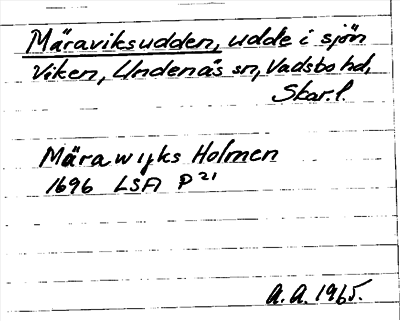 Märaviksudden, udde i sjön
Viken, Undenäs sn, Vadsbo hd,
Skar.l.
Märawijks Holmen
1696 LSA P21
A.A. 1965.